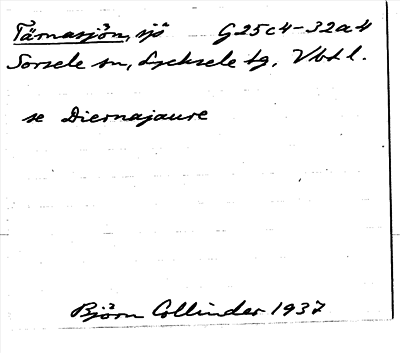 Tärnasjön, sjö G25c4-32a4
Sorsele sn, Lycksele tg, Vbtl.
se Diernajaure
Björn Collinder 1937